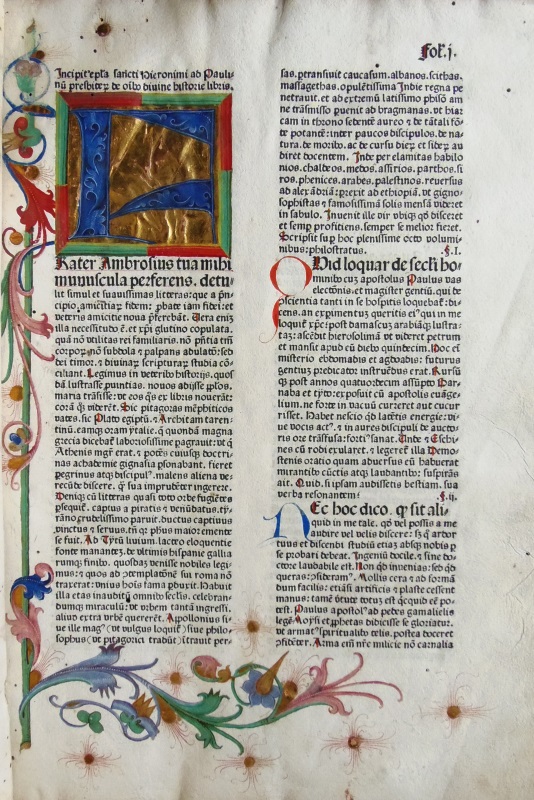 Fol. j.
Incipit epła sancti Hieronimi ad Pauli-
nū presbiteꝝ de oībꝰ divine historie libris.
Frater Ambrosius tua mihi
munuscula perferens. detu-
lit simul et suavissimas litteras: que a pn̄-
cipio amicitiaꝝ fidem: ꝓbate iam fidei: et
veteris amicicie noua ꝓferebāt. Uera enī
illa necessitudo ē. et xp̄i glutino copulata.
quā nō utilitas rei familiaris. nō pn̄tia tm̄
corpoꝝ. nō subdola ⁊ palpans adulatō: sed
dei timor. ⁊ divinaꝝ scripturaꝝ studia cō-
ciliant. Legimus in veteribꝰ historijs. quos-
dā lustrasse ꝓuintias. nouos adijsse pp̄los.
maria trāsisse: ut eos q̄s ex libris nouerāt:
corā q̄ꝫ viderēt. Sic pitagoras mēphiticos
vates. sic Plato egiptū. ⁊ Architam taren-
tinū. eamqꝫ oram ytalie. q̄ quondā magna
grecia dicebat̄ laboriosissime pagrauit: ut q̄
Athenis mgr̄ erat. ⁊ potēs. cuiusqꝫ doctri-
nas achademie gignasia ꝑsonabant. fieret
peregrinus atqꝫ discipulꝰ. malens aliena ve-
recūde discere. q̄ sua imprudēter ingerere.
Deniqꝫ cū litteras quasi toto orbe fugiētes
ꝑsequit̄. captus a piratis ⁊ venūdatus. ty-
ranno crudelissimo paruit. ductus captiuus
vinctus ⁊ seruus. tn̄ qꝛ phūs maior emente
se fuit. Ad Tytū liuium. lacteo eloquentie
fonte manantē. de ultimis hispanie gallia
rumqꝫ finibꝰ. quosdaꝫ venisse nobiles legi-
mus: ⁊ quos ad ꝯtemplatōnē sui roma nō
traxerat: vnius hoīs fama ꝑduxit. Habuit
illa etas inauditū omnibꝰ seclis. celebran-
dumqꝫ miraculū: ut vrbem tantā ingressi.
aliud extra vrbē quererēt. Apollonius si-
ue ille magꝰ (ut vulgus loquit̄) siue philo-
sophus (ut pitagorici tradūt) ītrauit per-
sas. ꝑtransiuit caucasum. albanos. scithas.
massagethas. opulētissima Indie regna pe
netrauit. et ad extremū latissimo phison am
ne trāsmisso ꝑuenit ad bragmanas. ut hiar-
cam in throno sedentē aureo ⁊ de tātali fō-
te potantē: inter paucos discipulos. de na-
tura. de moribꝰ. ac de cursu dieꝝ et sideꝝ au
diret docentem. Inde per elamitas babilo
nios. chaldeos. medos. assirios. parthos. si-
ros. phenices. arabes. palestinos. reuersus
ad alexādriā: ꝑrexit ad ethiopiā. ut gigno-
sophistas ⁊ famosissimā solis mensā videret
in sabulo. Inuenit ille vir vbiqꝫ qd̄ disceret
et semꝑ proficiens. semper se melior fieret.
Scripsit suꝑ hoc plenissime octo volumi-
nibus: philostratus. .§.I.
Quid loquar de secli ho-
minibꝰ cuꝫ apostolus Paulus vas
electōnis. et magister gentiū. qui de
ꝯscientia tanti in se hospitis loquebat̄: di-
cens. an exꝑimentuꝫ queritis eiꝰ qui in me
loquit̄ xp̄c: post damascuꝫ arabiāqꝫ lustra-
tā: ascēdit hierosolimā ut videret petrum
et mansit apud eū diebꝰ quindecim. Hoc em̄
misterio ebdomadis et ogdoadis: futurus
gentiuꝫ predicator instruēdus erat. Rursū
qꝫ post annos quatuordecim assūpto Bar-
naba et tyto: exposuit cū apostolis euāge-
lium. ne forte in vacuū curreret aut cucur
risset. Habet nescio qd̄ latētis energie: vi-
ue vocis actꝰ. ⁊ in aures discipuli de aucto-
ris ore trāsfusa: fortiꝰ sonat. Unde ⁊ Eschi-
nes cū rodi exularet. ⁊ legeret̄ illa Demo-
stenis oratio quam aduersus eū habuerat
mirantibꝰ cūctis atqꝫ laudantibꝰ: suspirās
ait. Quid. si ipsam audissetis bestiam. sua
verba resonantem? .§.ij.
Nec hoc dico. q̄ sit ali-
quid in me tale. qd̄ vel possis a me
audire vel velis discere: sꝫ q̄ ardor
tuus et discendi studiū etiā absqꝫ nobis ꝑ
se probari debeat. Ingeniū docile. ⁊ sine do-
ctore laudabile est. Non qd̄ inuenias: sed qd̄
queras: ꝯsideramꝰ. Mollis cera ⁊ ad formā-
dum facilis: etiā si artificis ⁊ plaste cessent
manus: tamē uirtute totuꝫ est qcquid ee po-
test. Paulus aposto ad pedes gamalielis
legē Moysi et ꝓphetas didicisse se gloriatur.
ut armatꝰ spiritualibꝰ telis. postea doceret
ꝯfidēter. Arma em̄ nr̄e milicie nō carnalia